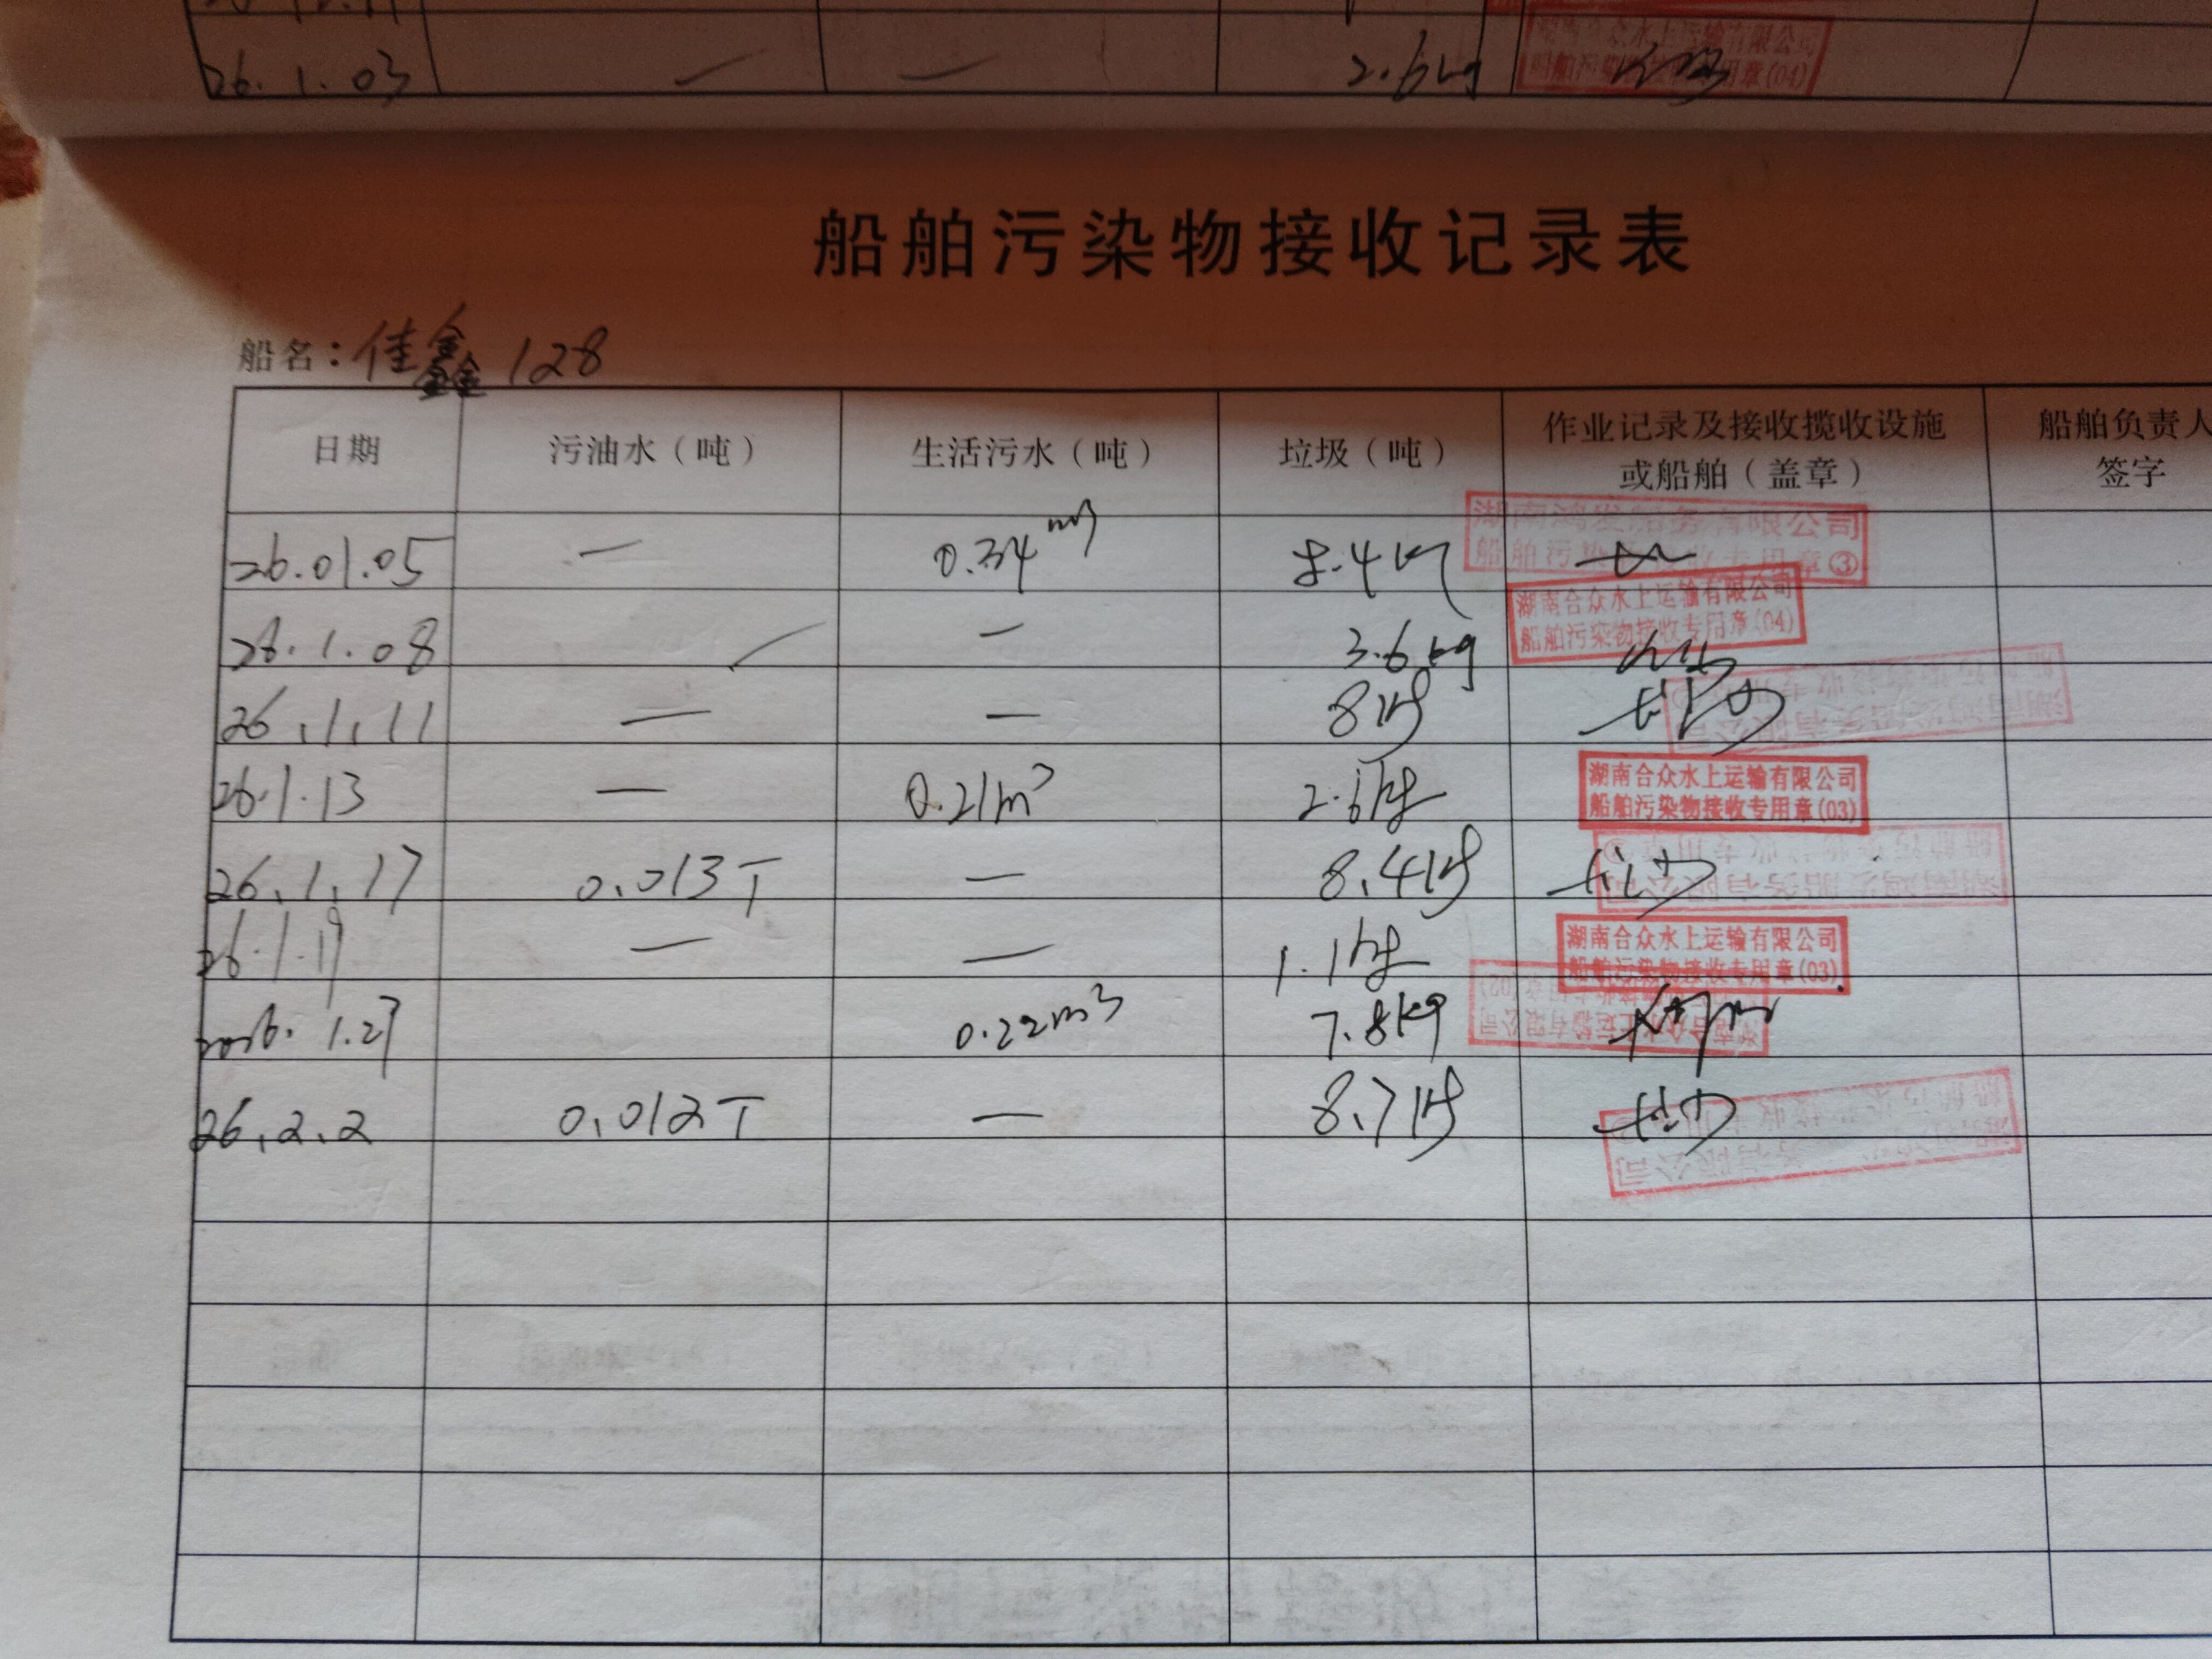 26.1.03 — — 2.6kg
船舶污染物接收用章(04)
船舶污染物接收记录表
船名：佳鑫 128
日期 污油水（吨） 生活污水（吨） 垃圾（吨） 作业记录及接收揽收设施 船舶负责人
或船舶（盖章） 签字
湖南鸿发船务有限公司
26.01.05 — 0.34m³ 8.4kg 船舶污染物接收专用章③
湖南合众水上运输有限公司
船舶污染物接收专用章(04)
26.1.08 — — 3.6kg
26.1.11 — — 8kg
湖南合众水上运输有限公司
26.1.13 — 0.21m³ 2.6kg 船舶污染物接收专用章(03)
26.1.17 0.013T — 8.4kg
湖南合众水上运输有限公司
26.1.19 — — 1.1kg 船舶污染物接收专用章(03)
2026.1.27 0.22m³ 7.8kg
26.2.2 0.012T — 8.7kg